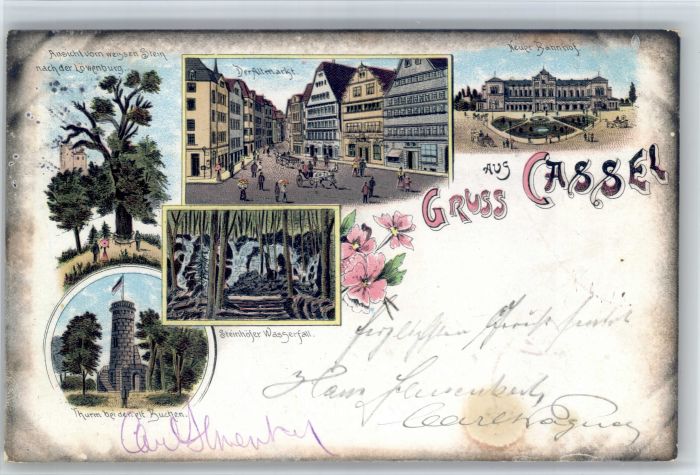 Ansicht vom weissen Stein
nach der Löwenburg.
Der Altmarkt.
Neuer Bahnhof
GRUSS AUS CASSEL
Steinhöfer Wasserfall.
Thurm bei den elf Buchen.
Hans
Carl Wagner
Carl